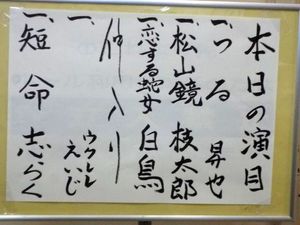 本日の演目
一、つる 昇也
一、松山鏡 枝太郎
一、恋する蛇女 白鳥
仲入り
一、ウクレレえいじ
一、短命 志らく